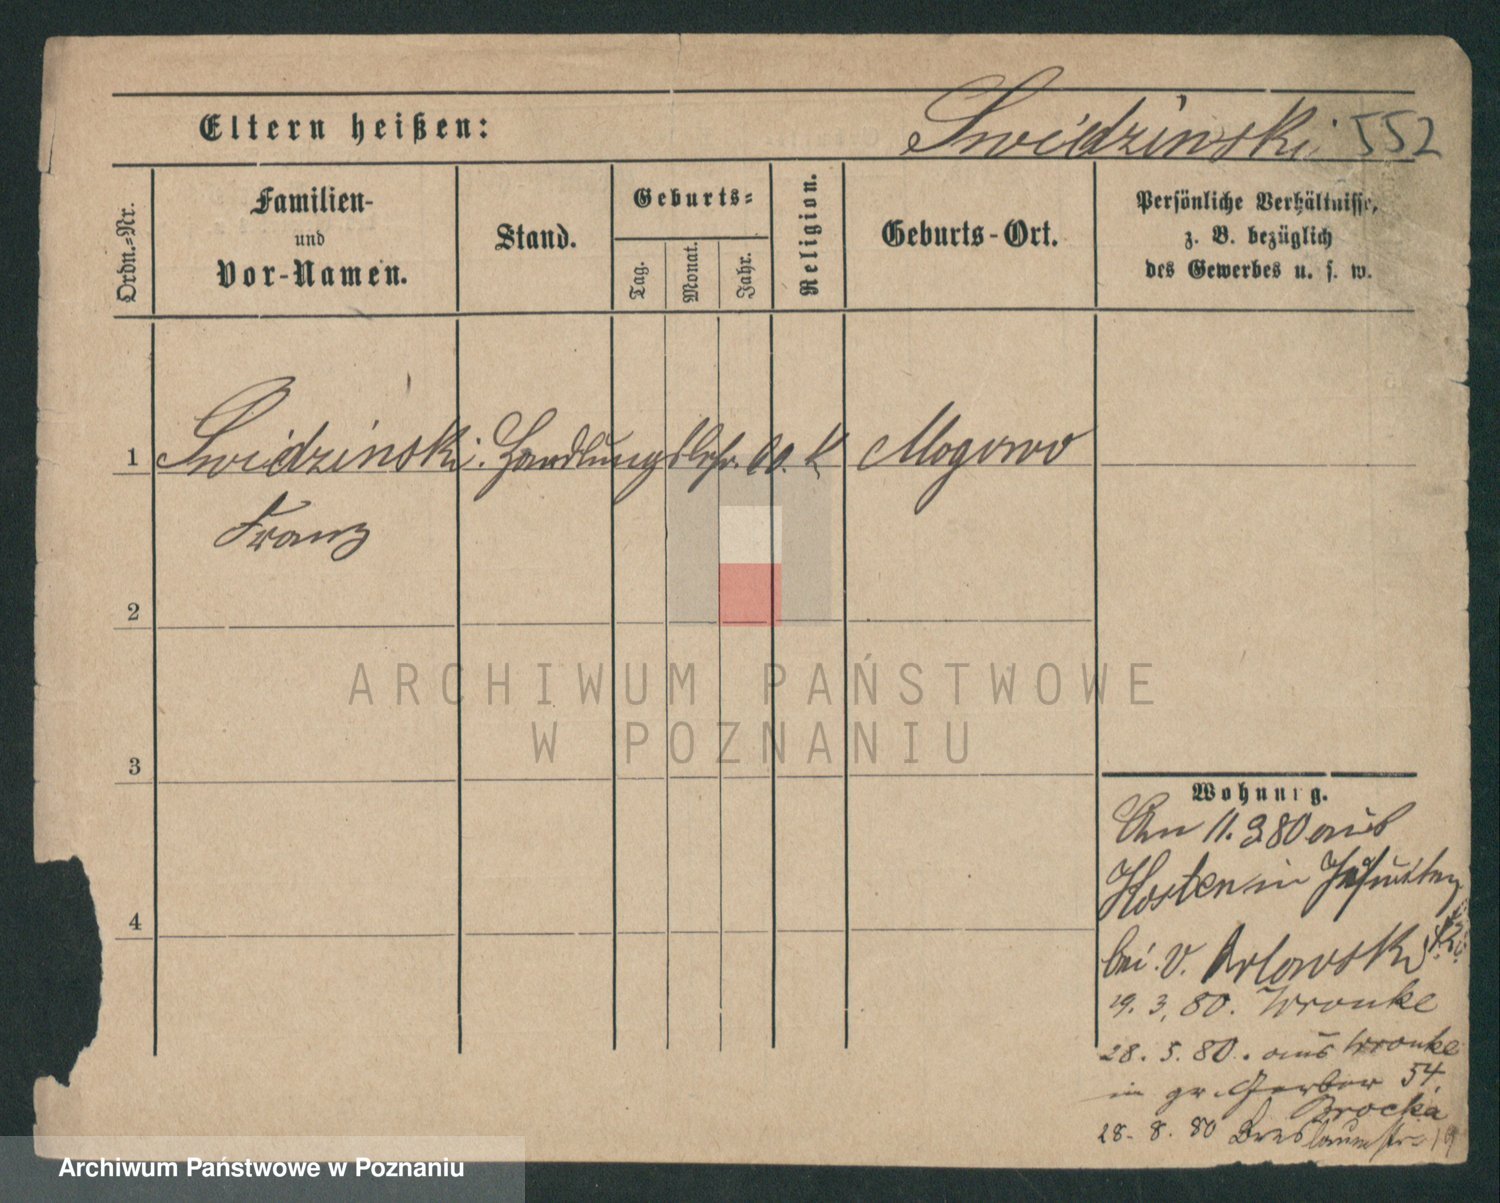 Eltern heißen:
Swidzinski 552
Ordn.-Nr.
Familien-
und
Vor-Namen.
Stand.
Geburts-
Tag.
Monat.
Jahr.
Religion.
Geburts-Ort.
Persönliche Verhältnisse,
z. B. bezüglich
des Gewerbes u. s. w.
1 Swidzinski. Handlungslehr. 60. K Mogowo
Franz
2
3
4
ARCHIWUM PAŃSTWOWE
W POZNANIU
Wohnung.
An 11. 3 80 aus
Kosten in
bei. v. Orlowski
19. 3, 80. Wronke
28. 5. 80. aus Wronke
in gr. Gerber 54.
Brocka
28. 8. 80 Breslauerstr. 19
Archiwum Państwowe w Poznaniu